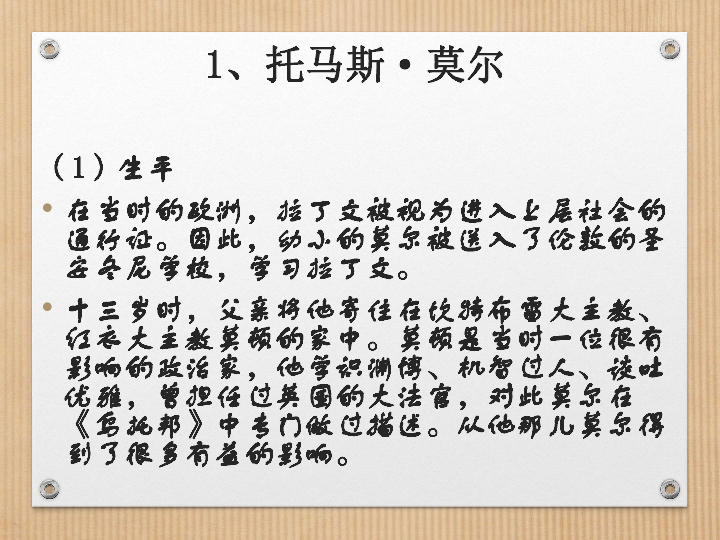 1、托马斯·莫尔
（1）生平
• 在当时的欧洲，拉丁文被视为进入上层社会的
通行证。因此，幼小的莫尔被送入了伦敦的圣
安东尼学校，学习拉丁文。
• 十三岁时，父亲将他寄住在坎特布雷大主教、
红衣大主教莫顿的家中。莫顿是当时一位很有
影响的政治家，他学识渊博、机智过人、谈吐
优雅，曾担任过英国的大法官，对此莫尔在
《乌托邦》中专门做过描述。从他那儿莫尔得
到了很多有益的影响。